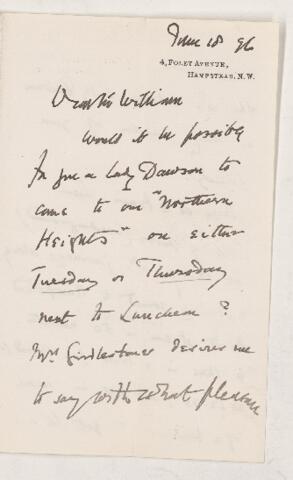 June 18 96
4, FOLEY AVENUE,
HAMPSTEAD, N.W.
Dear Sir William
Would it be possible
for you & Lady Dawson to
come to our "Northern
Heights" on either
Tuesday or Thursday
next to Luncheon?
Mrs Girdlestone desires me
to say with what pleasure